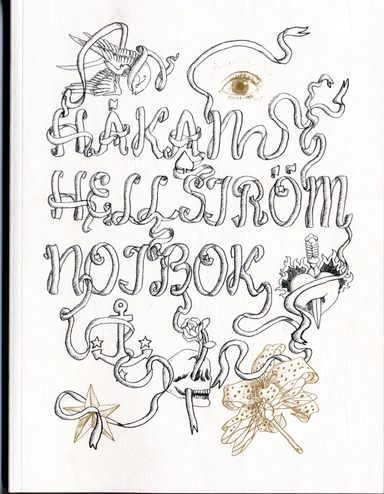 HÅKANS
HELLSTRÖM
NOTBOK